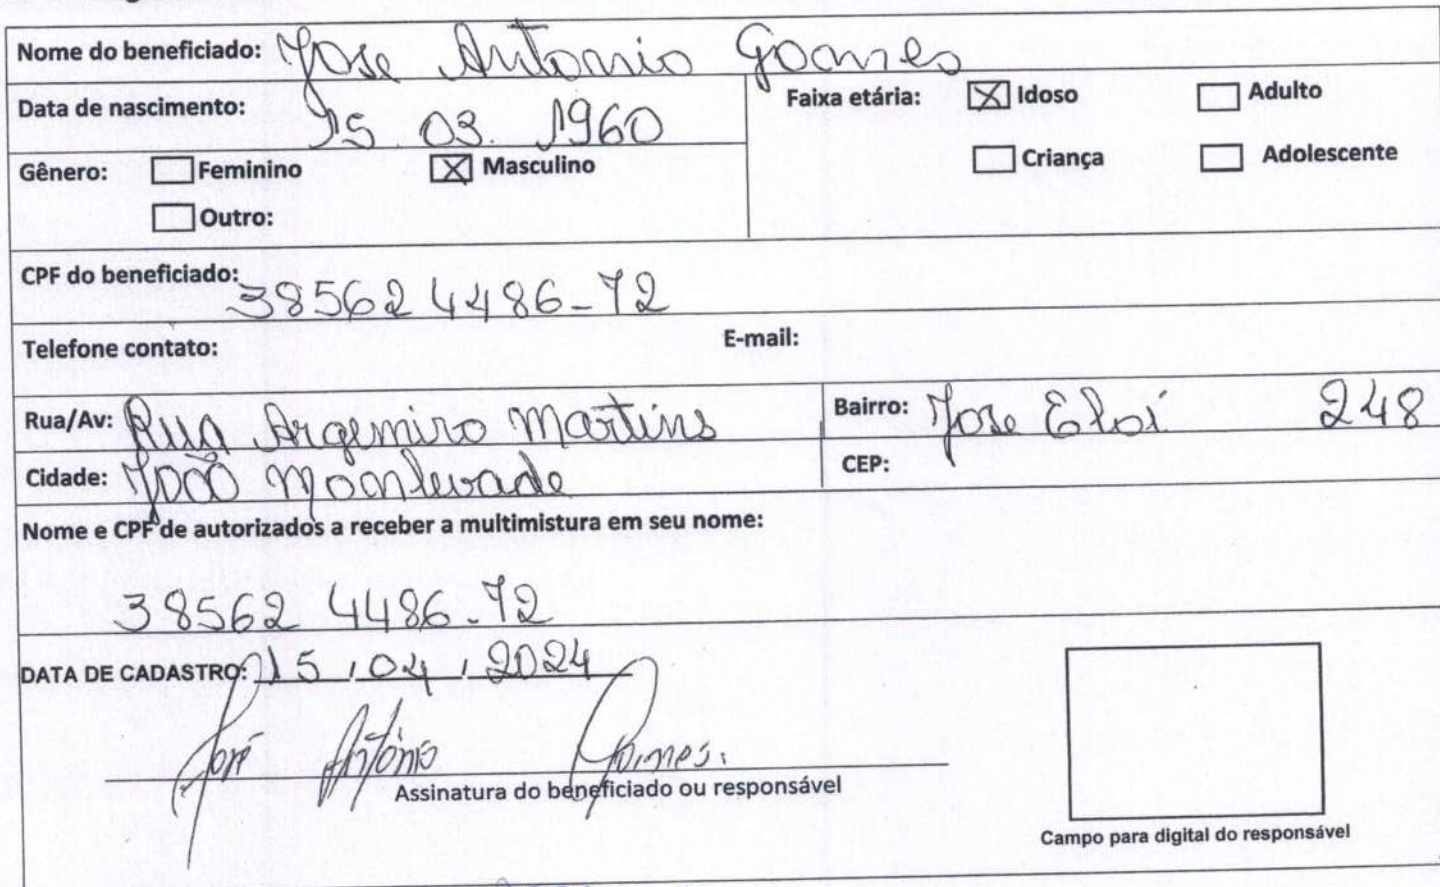 Nome do beneficiado: Jose Antonio Gomes
Data de nascimento: 15 03. 1960
Faixa etária: ☒ Idoso ☐ Adulto
☐ Criança ☐ Adolescente
Gênero: ☐ Feminino ☒ Masculino
☐ Outro:
CPF do beneficiado: 38562 4486-72
Telefone contato: E-mail:
Rua/Av: Rua Argemiro Martins Bairro: Jose Eloi 248
Cidade: João Monlevade CEP:
Nome e CPF de autorizados a receber a multimistura em seu nome:
38562 4486-72
DATA DE CADASTRO: 15 / 04 / 2024
José Antônio Gomes.
Assinatura do beneficiado ou responsável
Campo para digital do responsável